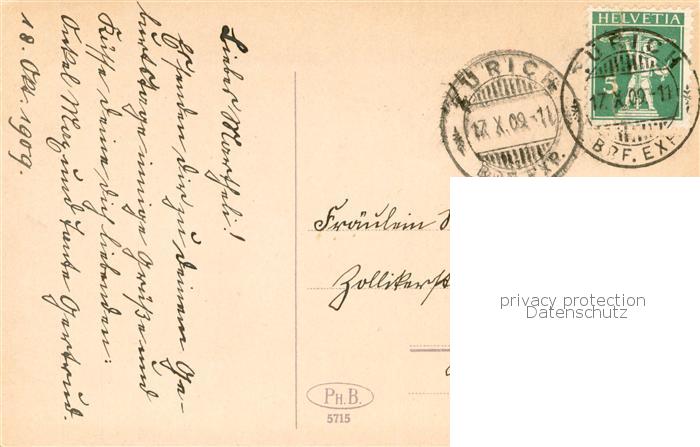 Liebes Margtheli!
Es senden dir zu deinem Ge-
burtstage innige Grüße und
Küsse deine dich liebenden:
Onkel Max und Tante Gertrud.
18. Okt. 1909.
HELVETIA
5
ZÜRICH
17.X.09.-11
BRF. EXP.
ZÜRICH
17.X.09.-11
BRF. EXP.
Fräulein
Zollikerst
PH.B.
5715
privacy protection
Datenschutz